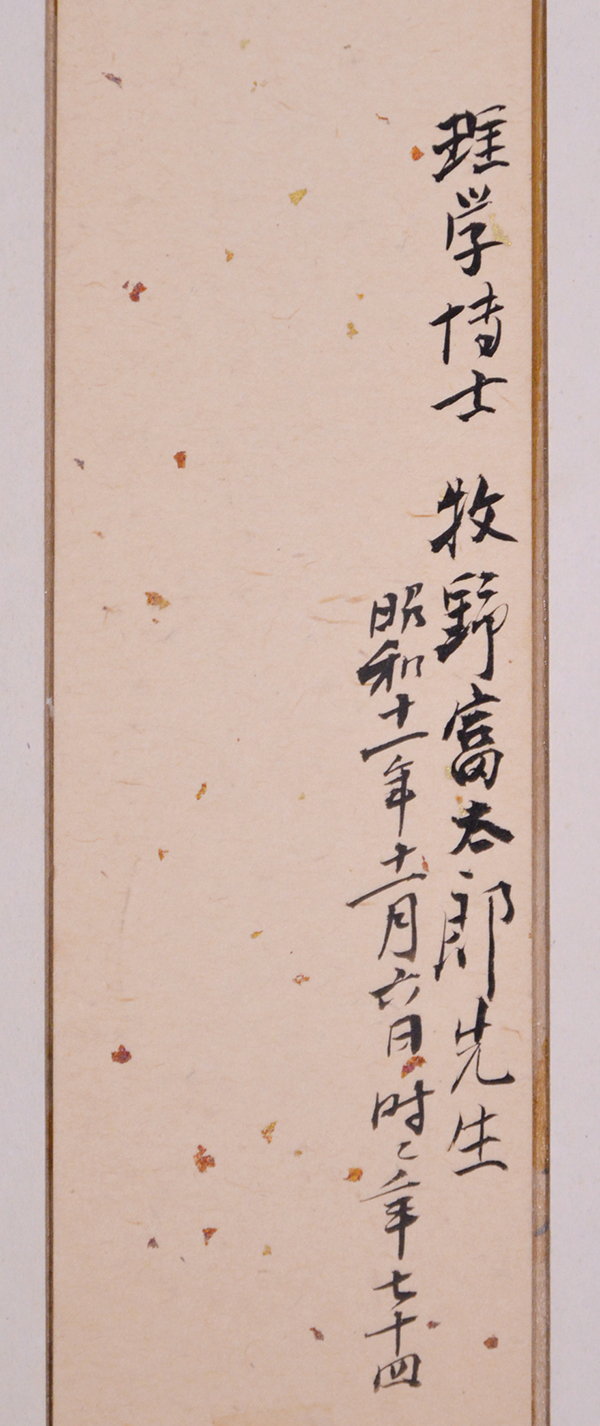 理学博士 牧野富太郎先生
昭和十一年十二月六日時ニ年七十四